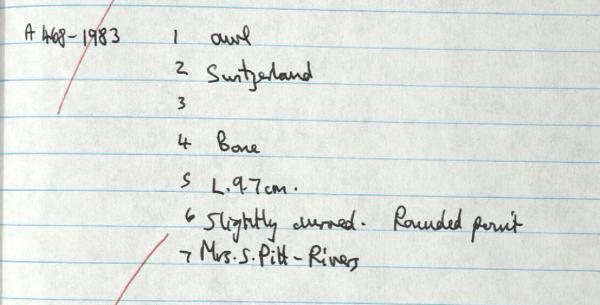 A 468-1983 1 awl
2 Switzerland
3
4 Bone
5 L.9.7cm.
6 Slightly curved. Rounded point
7 Mrs. S. Pitt-Rivers